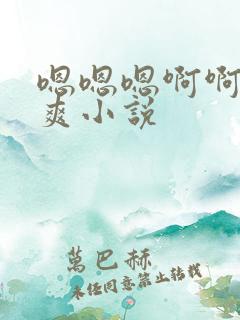 嗯嗯嗯啊啊
爽小说
萬巴赫
未经同意禁止转载